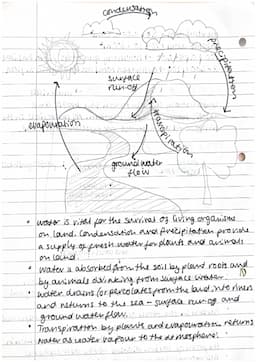 condensation
precipitation
surface
run-off
evapouration
transpiration
groundwater
flow
• Water is vital for the survival of living organisms
on land. Condensation and precipitation provide
a supply of fresh water for plants and animals
on land.
• Water is absorbed from the soil by plant roots and
by animals drinking from surface water.
• Water drains (or percolates from the land into rivers
and returns to the sea - surface run-off and
ground water flow.
• Transpiration by plants and evapouration returns
water as water vapour to the atmosphere.